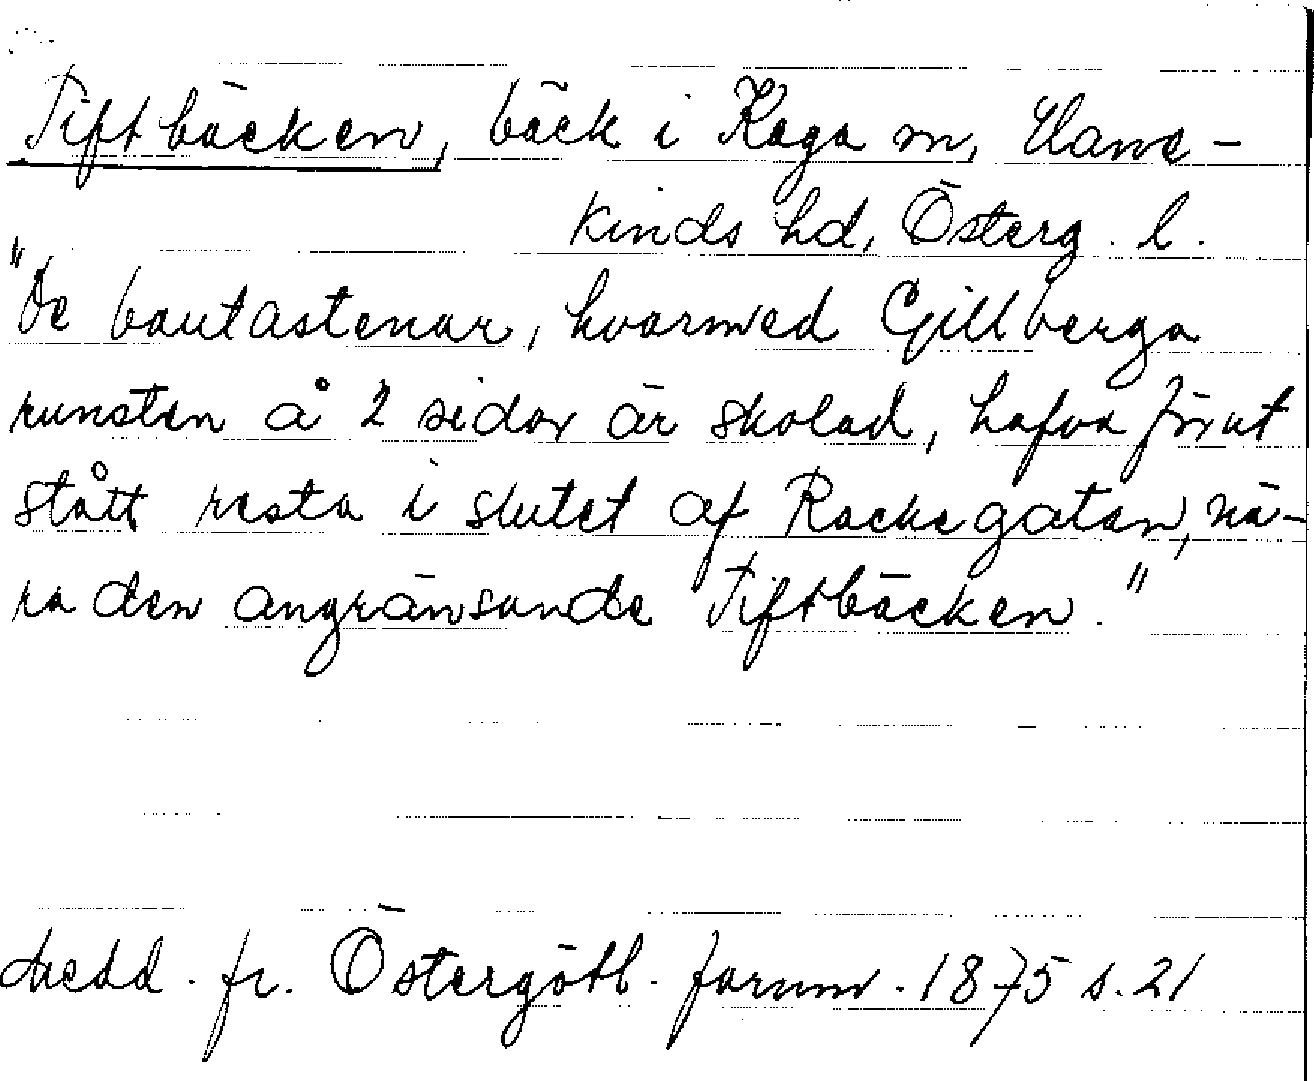 Tiftbäcken, bäck i Kaga sn, Hane-
kinds hd, Österg. l.
"De bautastenar, hvarmed Gillberga
runsten å 2 sidor är skolad, hafva förut
stått resta i slutet af Rackegatan, nä-
ra den angränsande Tiftbäcken."
Medd. fr. Östergötl. fornm. 1875 s. 21